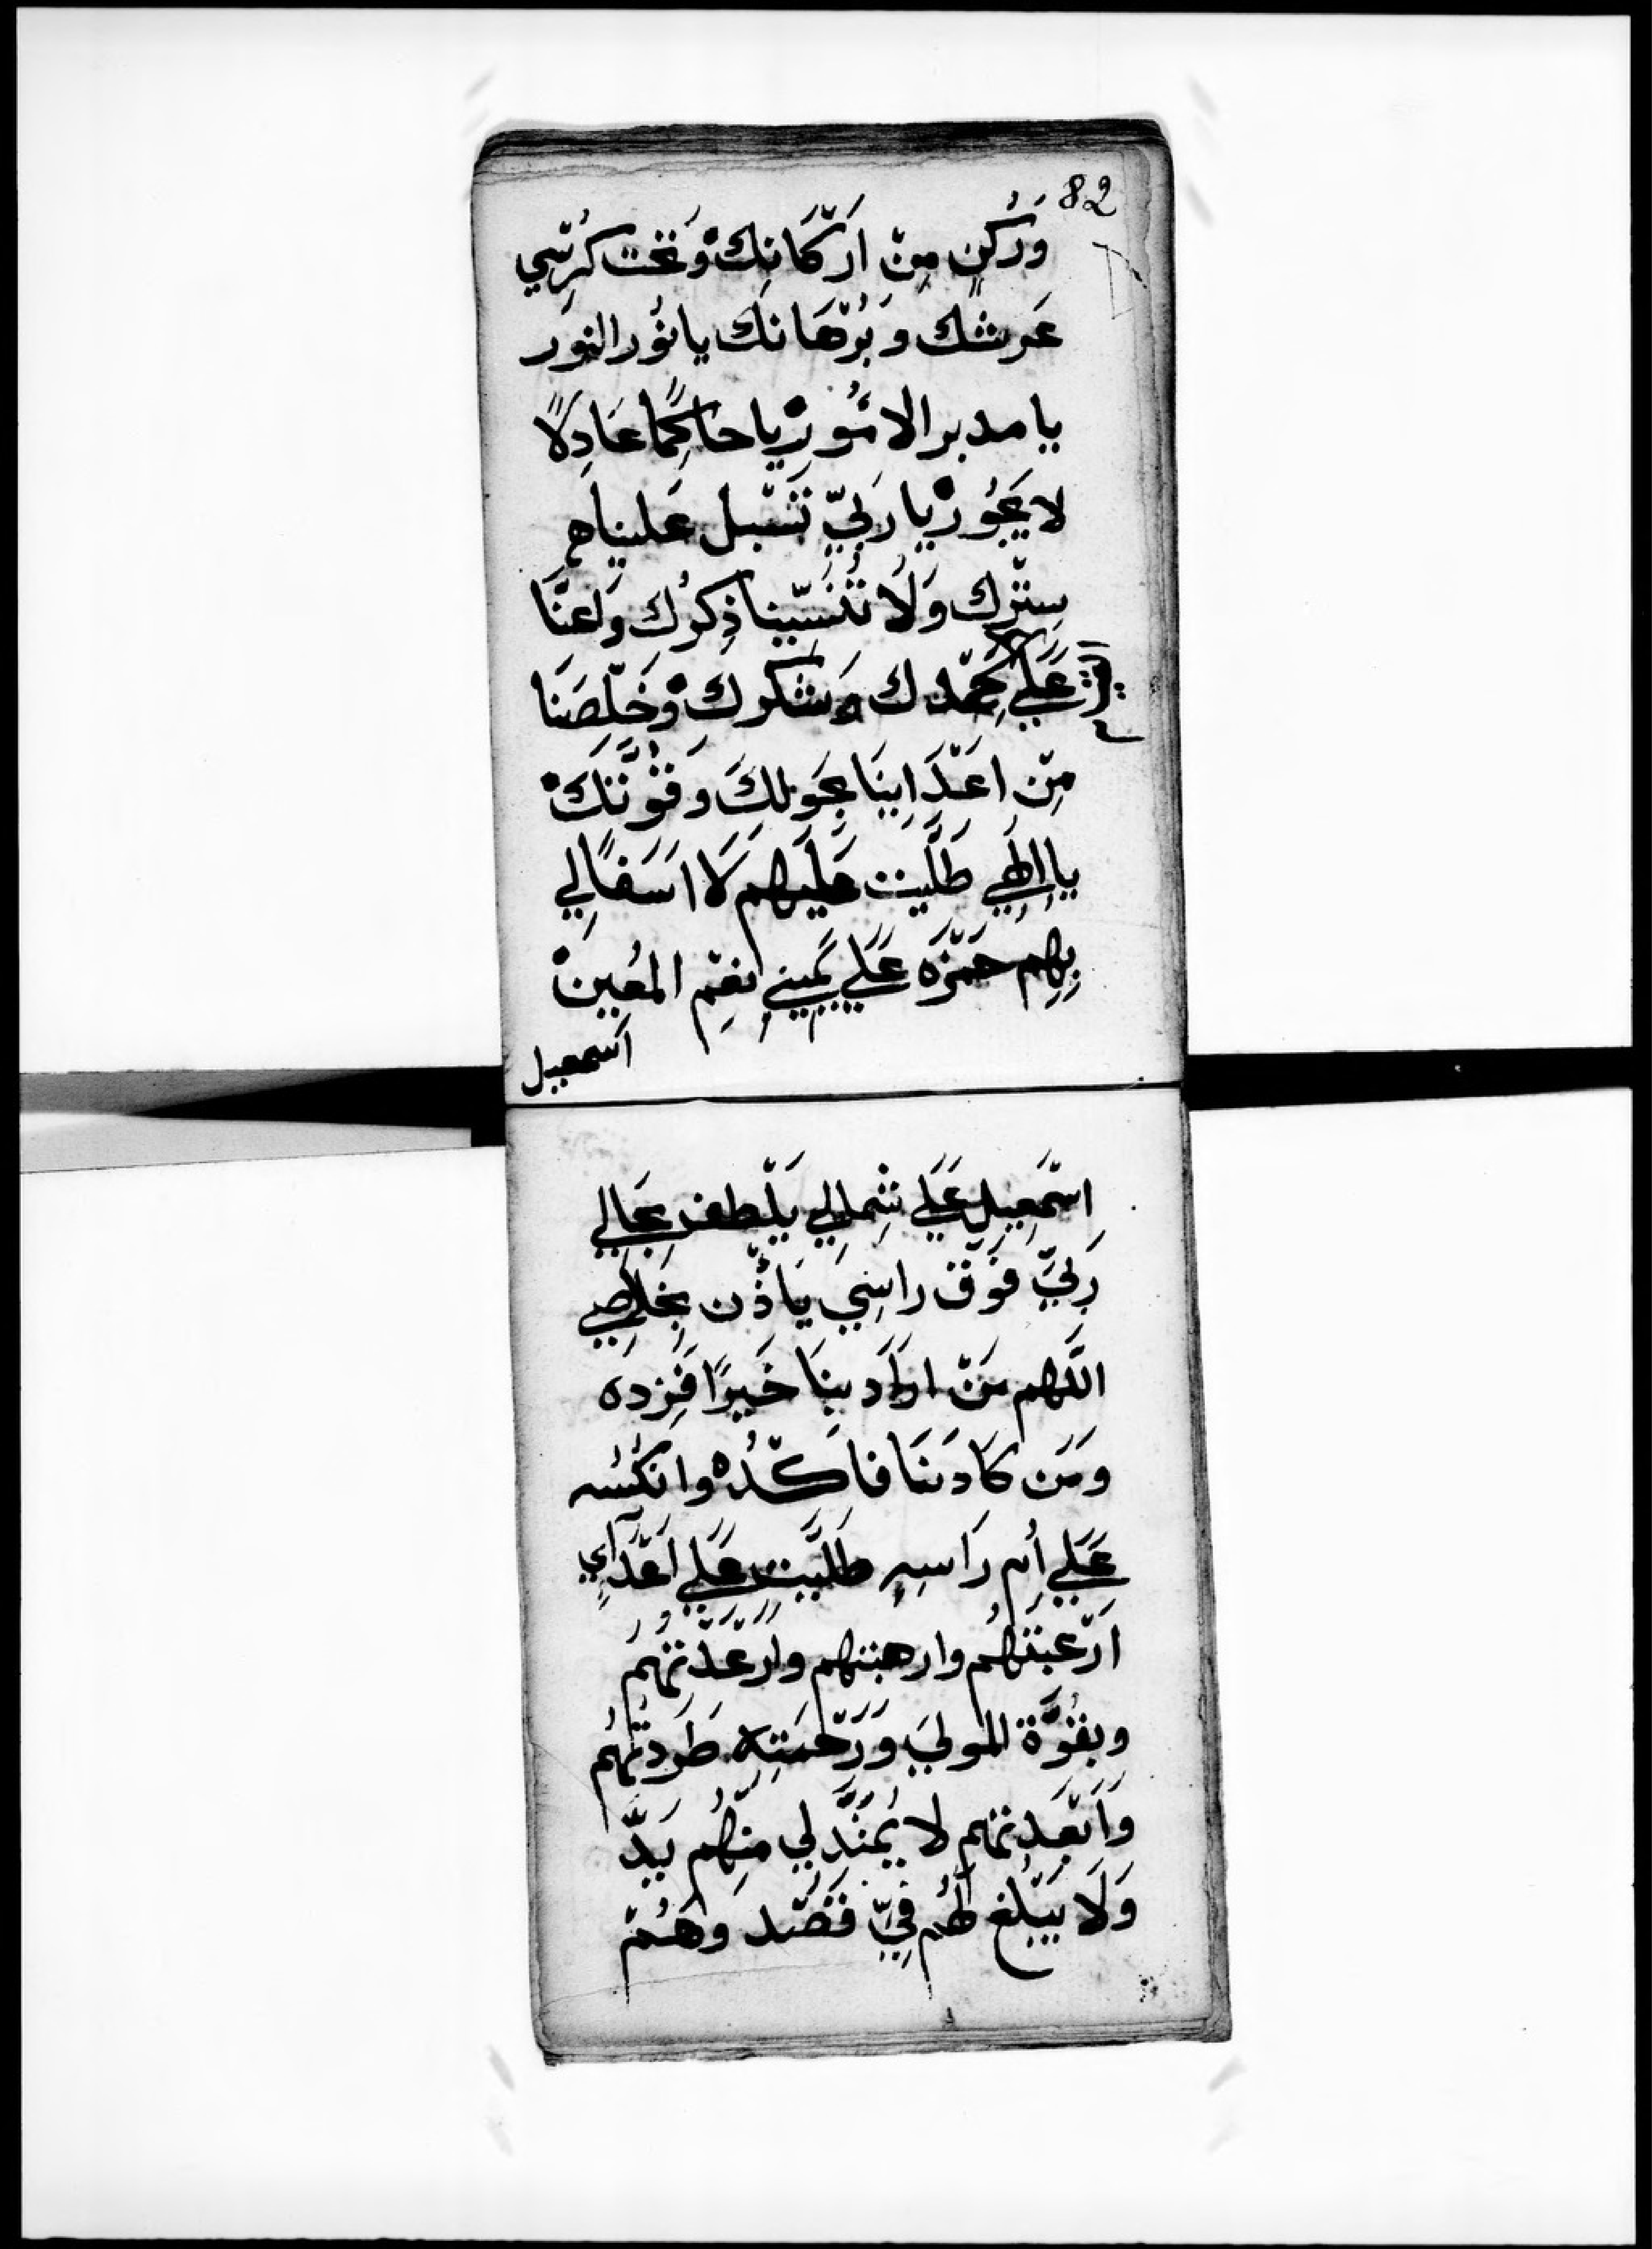 82
وَرُكنٍ مِنْ ارْكَانِك وَتحت كُرْسِي
عَرشك وَبُرْهَانك يا نُور النوَر
يا مدبر الامُورْ يا حَاكِمًا عَادِلًا
لا يَجُورْ يا رَبيّ تَسْبل عَليناه
سِتْرك وَلَا تُنَسّينا ذِكرُك وَاعنَّا
عَلَي حَمْدك وَشكرك وَخَلّصَنَا
مِنْ اعْدَاينَا بحَولكَ وَقُوَّتكْ
يا اِلهي طَلّيت عَليَهم لَا اسَفًا لي
بِهِم حَمْزَه عَلَي يمَيني نعِم المعُينْ
اسمعيل
اسْمَعِيل عَلَي شِمالِي يَلْطف بحَالِي
رَبيّ فَوْق راسِي يَأذُن بخَلاصِي
اللَّهم مَنْ ارَادَ بِنَا خَيرًا فَزِده
وَمَن كَادَنَا فاكُدْهُ وانكُسُه
عَلَي اُم رَاسِه طَلَّيت عَلَي اعْدَآي
ارْعَبْتَهُم وارهبتهم وارْعَدْتهُم
وبقُوَّة المولي وَرَحْمَتِه طَرَدتهُم
وَابْعَدتهم لا يُمَدَّ لي مِنهُم يَدّ
وَلَا يَبْلُغ لَهُم فيّ قَصْد وَهُمْ